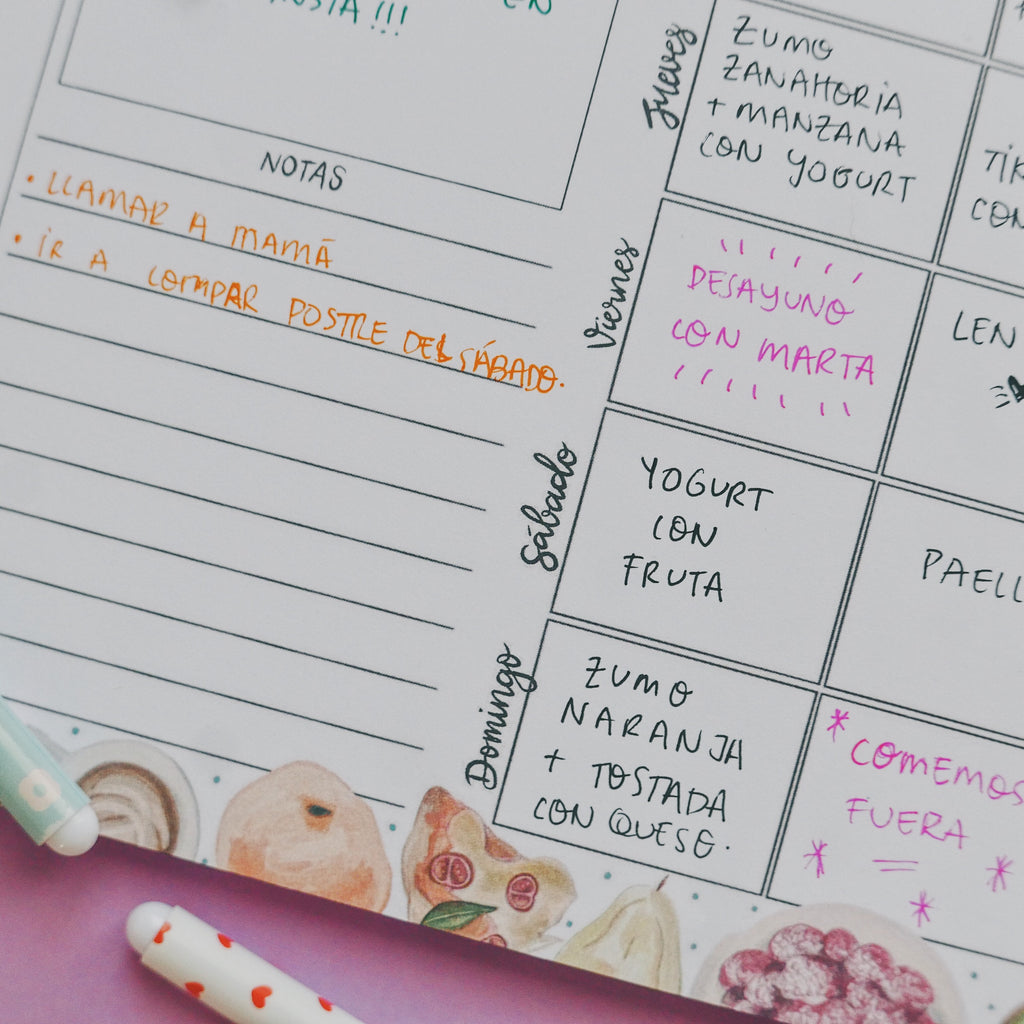 EN
!!!
NOTAS
• LLAMAR A MAMÁ
• IR A COMPAR POSTRE DEL SÁBADO.
Jueves
ZUMO
ZANAHORIA
+ MANZANA
CON YOGURT
CON
Viernes
DESAYUNO
CON MARTA
LEN
Sábado
YOGURT
CON
FRUTA
PAELL
Domingo
ZUMO
NARANJA
+ TOSTADA
CON QUESO.
COMEMOS
FUERA